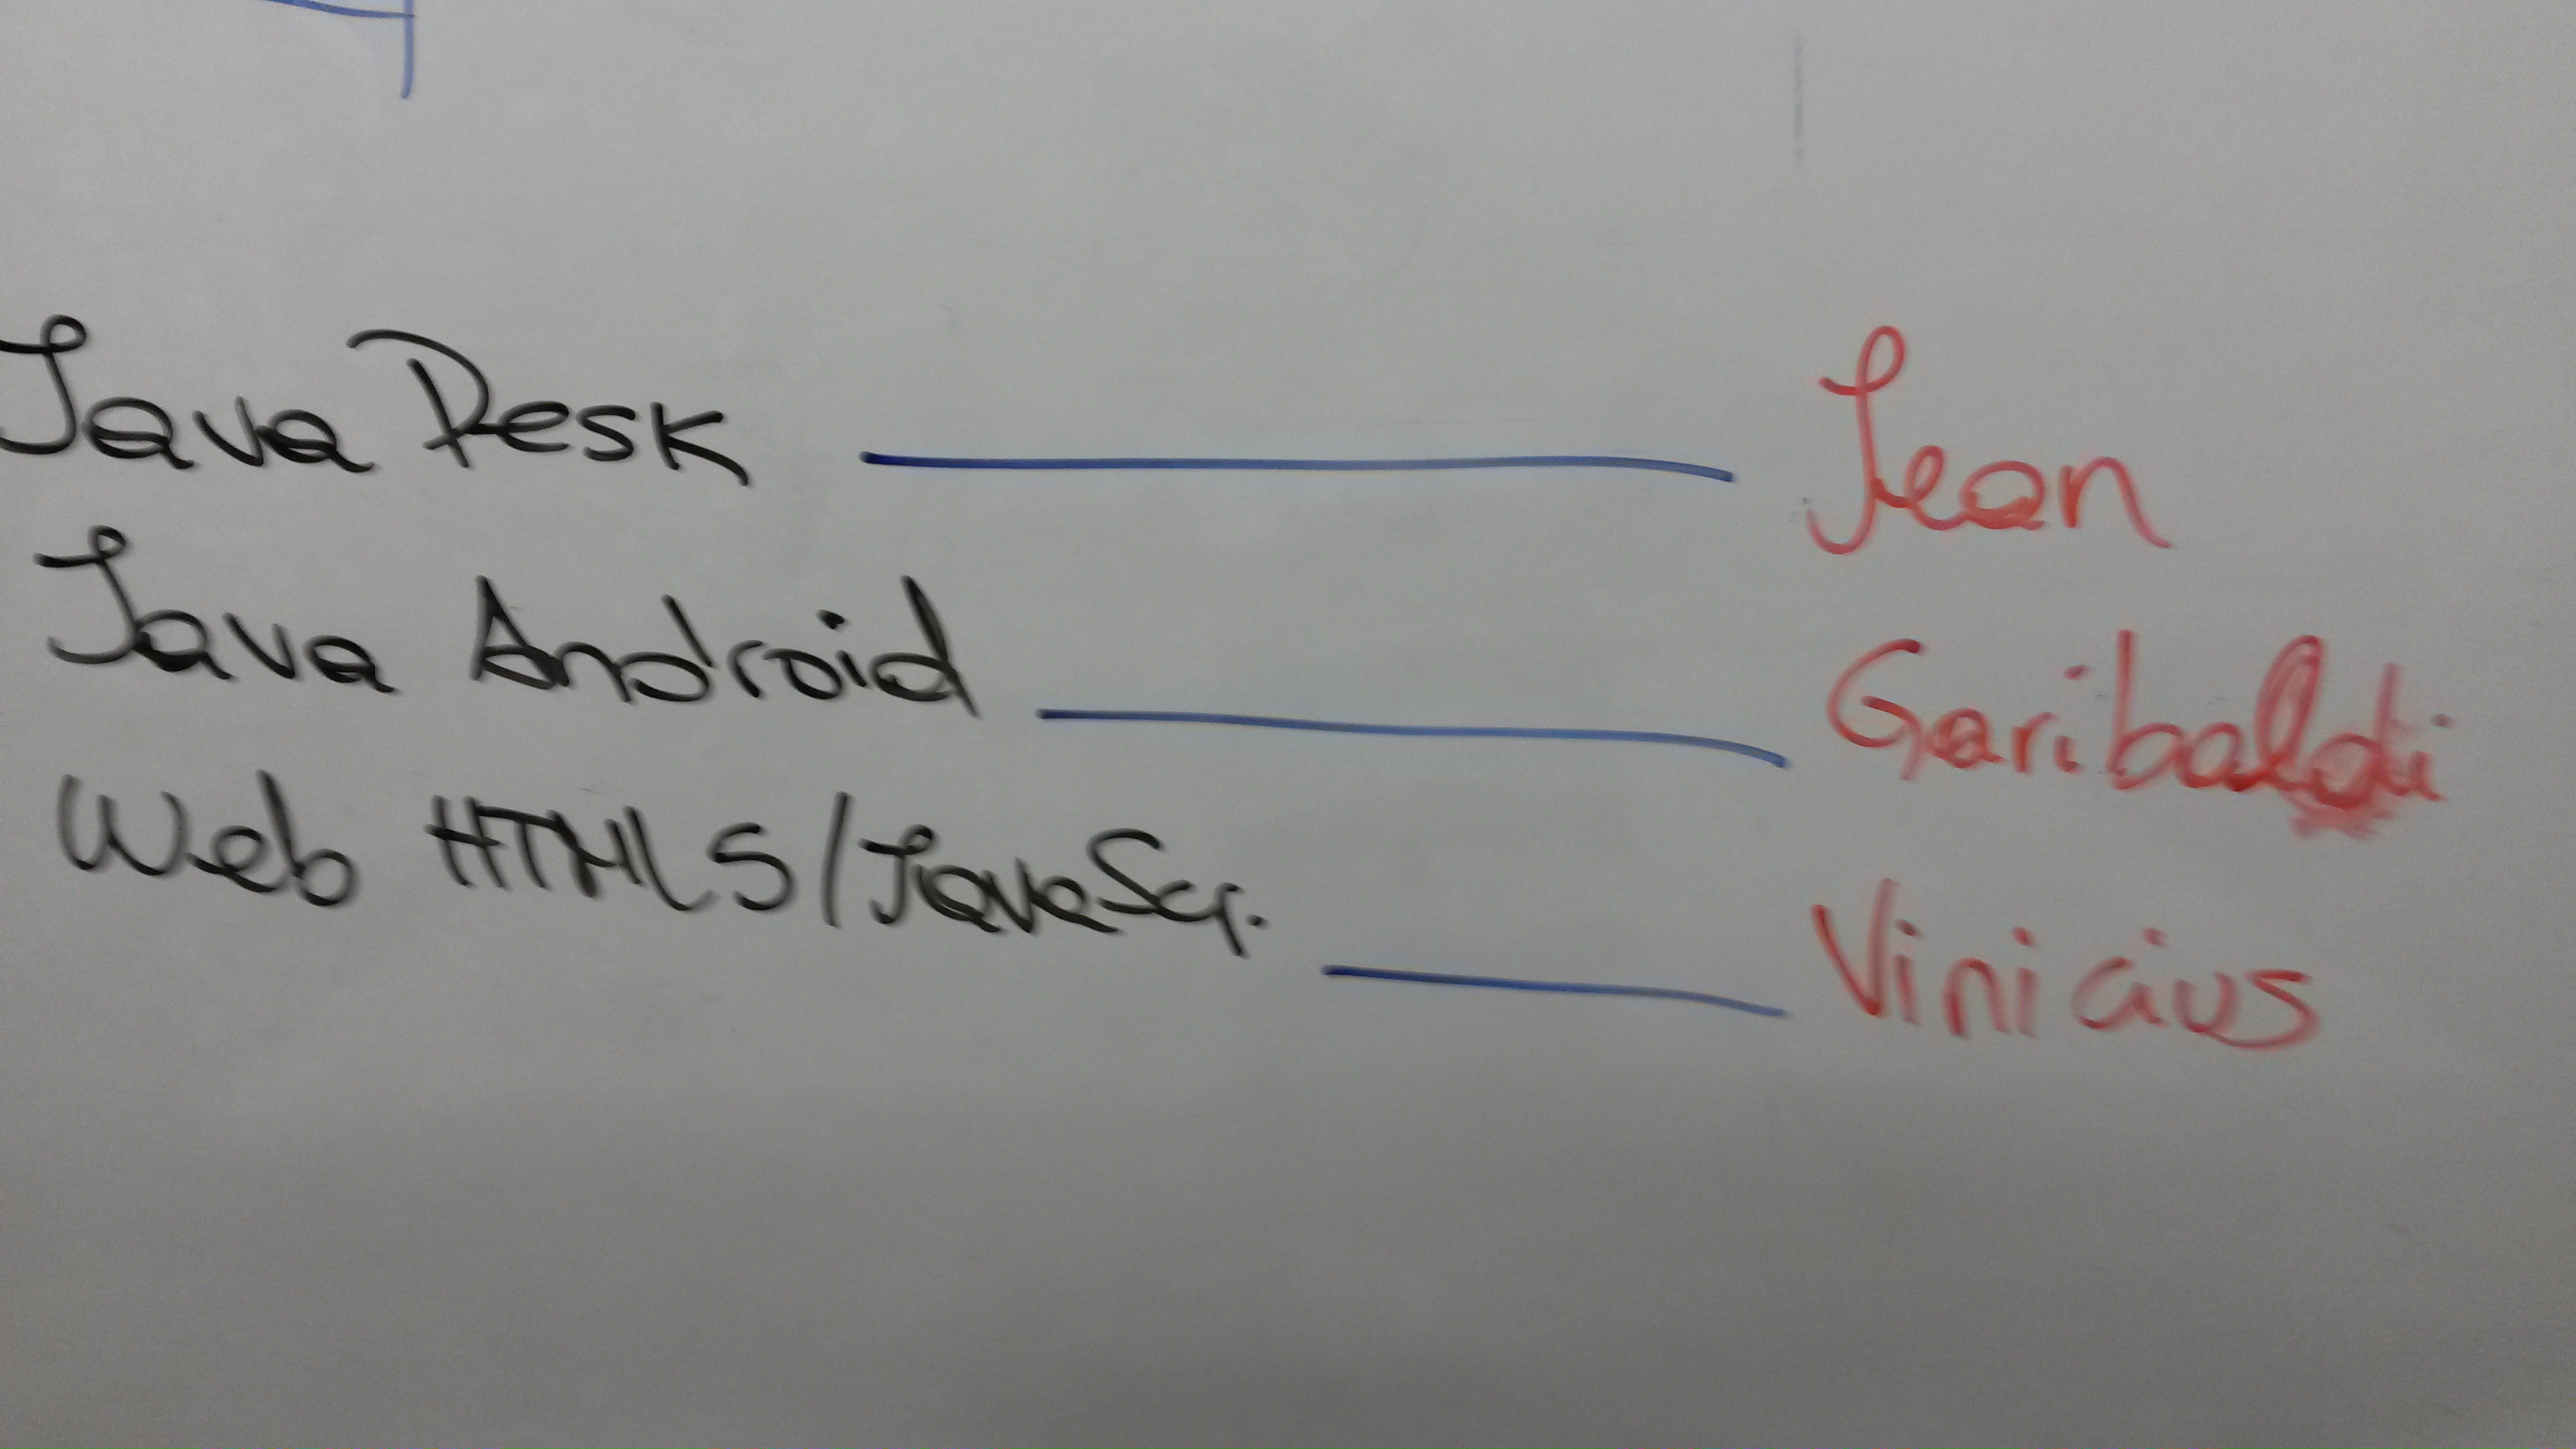 Java Desk Jean
Java Android Garibaldi
Web HTML5/JavaScr. Vinicius